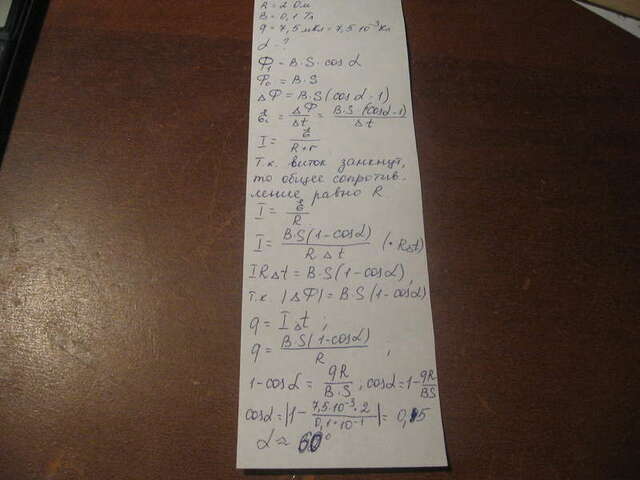 R = 2 Ом
B = 0,1 Тл
q = 7,5 мкл = 7,5·10⁻³ Кл
α - ?
Φ₁ = B·S·cos α
Φ₀ = B·S
ΔΦ = B·S(cos α - 1)
ℰᵢ = ΔΦ/Δt = B·S·(cosα-1)/Δt
I = ℰ/R+r
Т.к. виток замкнут,
то общее сопротив-
ление равно R
I = ℰ/R
I = B·S(1-cosα)/RΔt (·RΔt)
IRΔt = B·S(1-cosα),
т.к |ΔΦ| = B·S(1-cosα)
q = IΔt ;
q = B·S(1-cosα)/R ;
1-cosα = qR/B·S , cosα = 1-qR/BS
cosα = |1 - 7,5·10⁻³·2/0,1·10⁻¹| = 0,5
α ≈ 60°